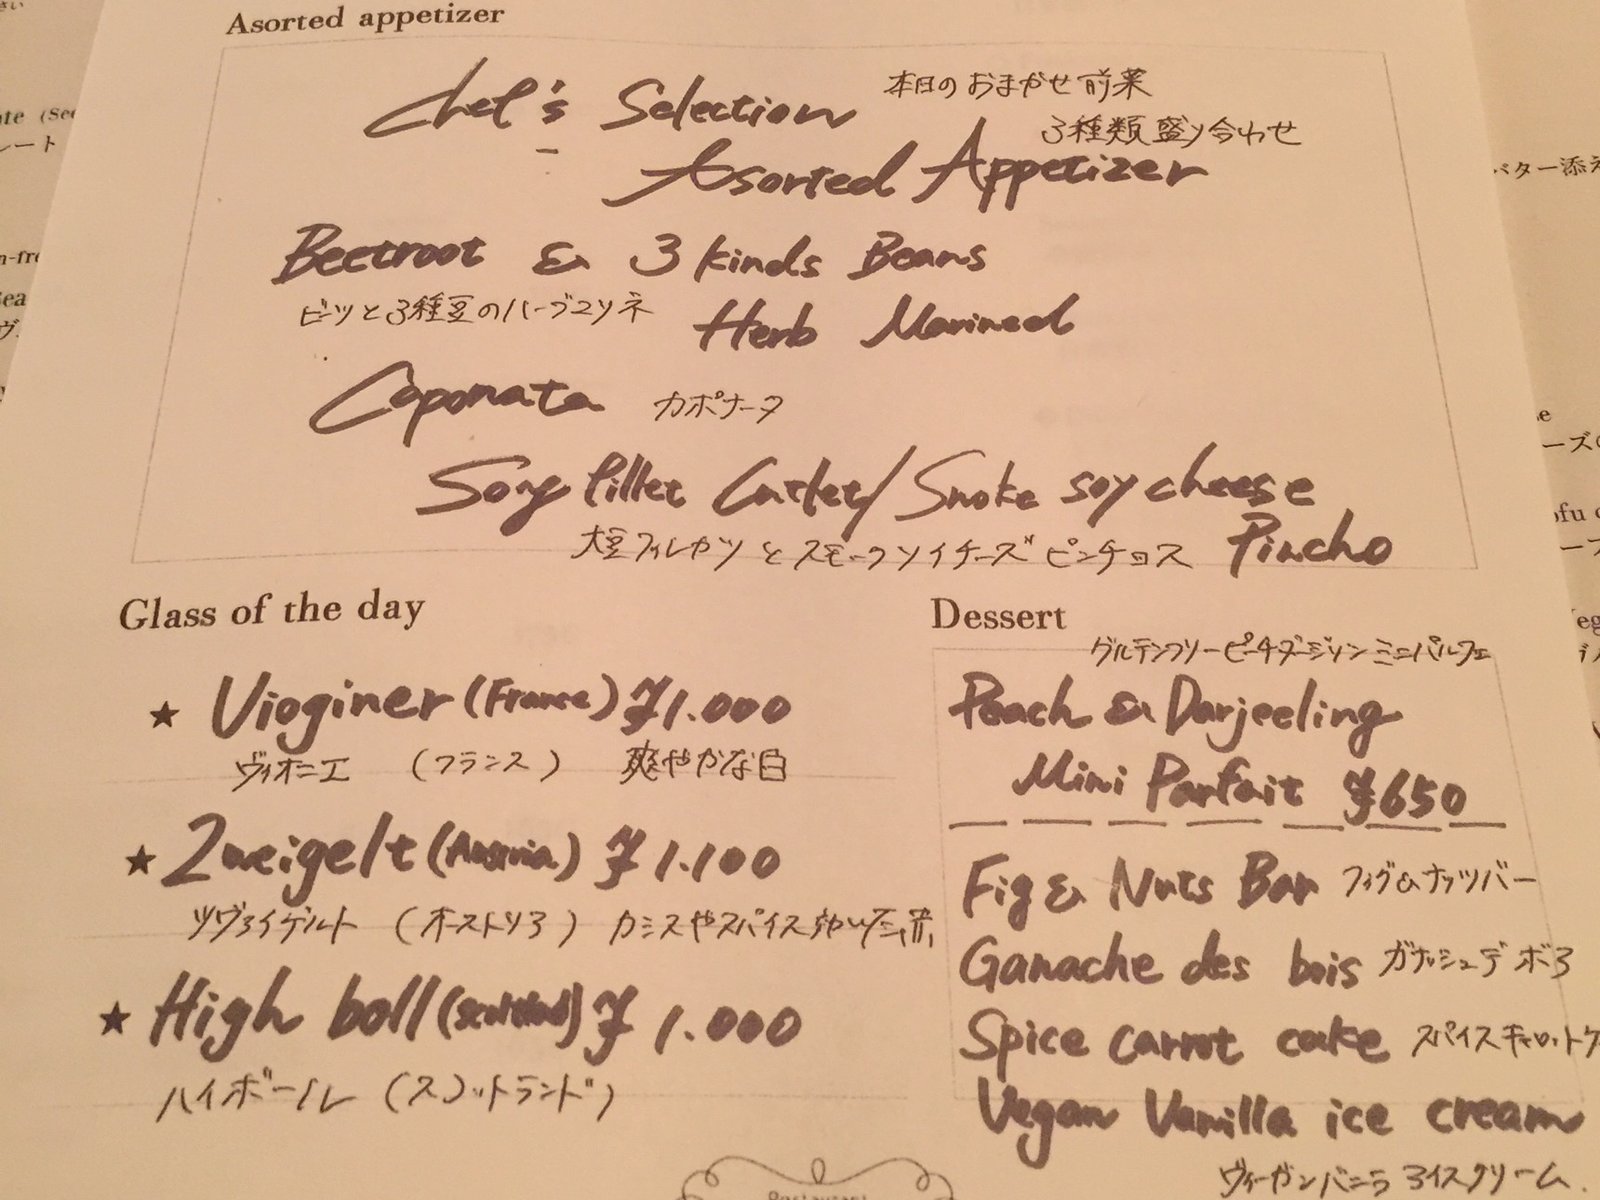 Asorted appetizer
Chef's Selection 本日のおまかせ前菜
3種類盛り合わせ
Asorted Appetizer
Beetroot & 3 kinds Beans
ビーツと3種豆のハーブマリネ Herb Marined
Caponata カポナータ
Soy fillet Cutlet/Smoke soy cheese
大豆フィレカツとスモークソイチーズピンチョス Pincho
Glass of the day
★ Vioginer (France) ¥1.000
ヴィオニエ (フランス) 爽やかな白
★ Zweigelt (Austria) ¥1.100
ツヴァイゲルト (オーストリア) カシスやスパイス
★ High boll (Scotland) ¥1.000
ハイボール (スコットランド)
Dessert
グルテンフリーピーチダージリンミニパルフェ
Peach & Darjeeling
Mini Parfait ¥650
Fig & Nuts Bar フィグ&ナッツバー
Ganache des bois ガナッシュデボア
Spice carrot cake スパイスキャロットケ
Vegan Vanilla ice cream
ヴィーガンバニラアイスクリーム.
Restaurant
バター添え